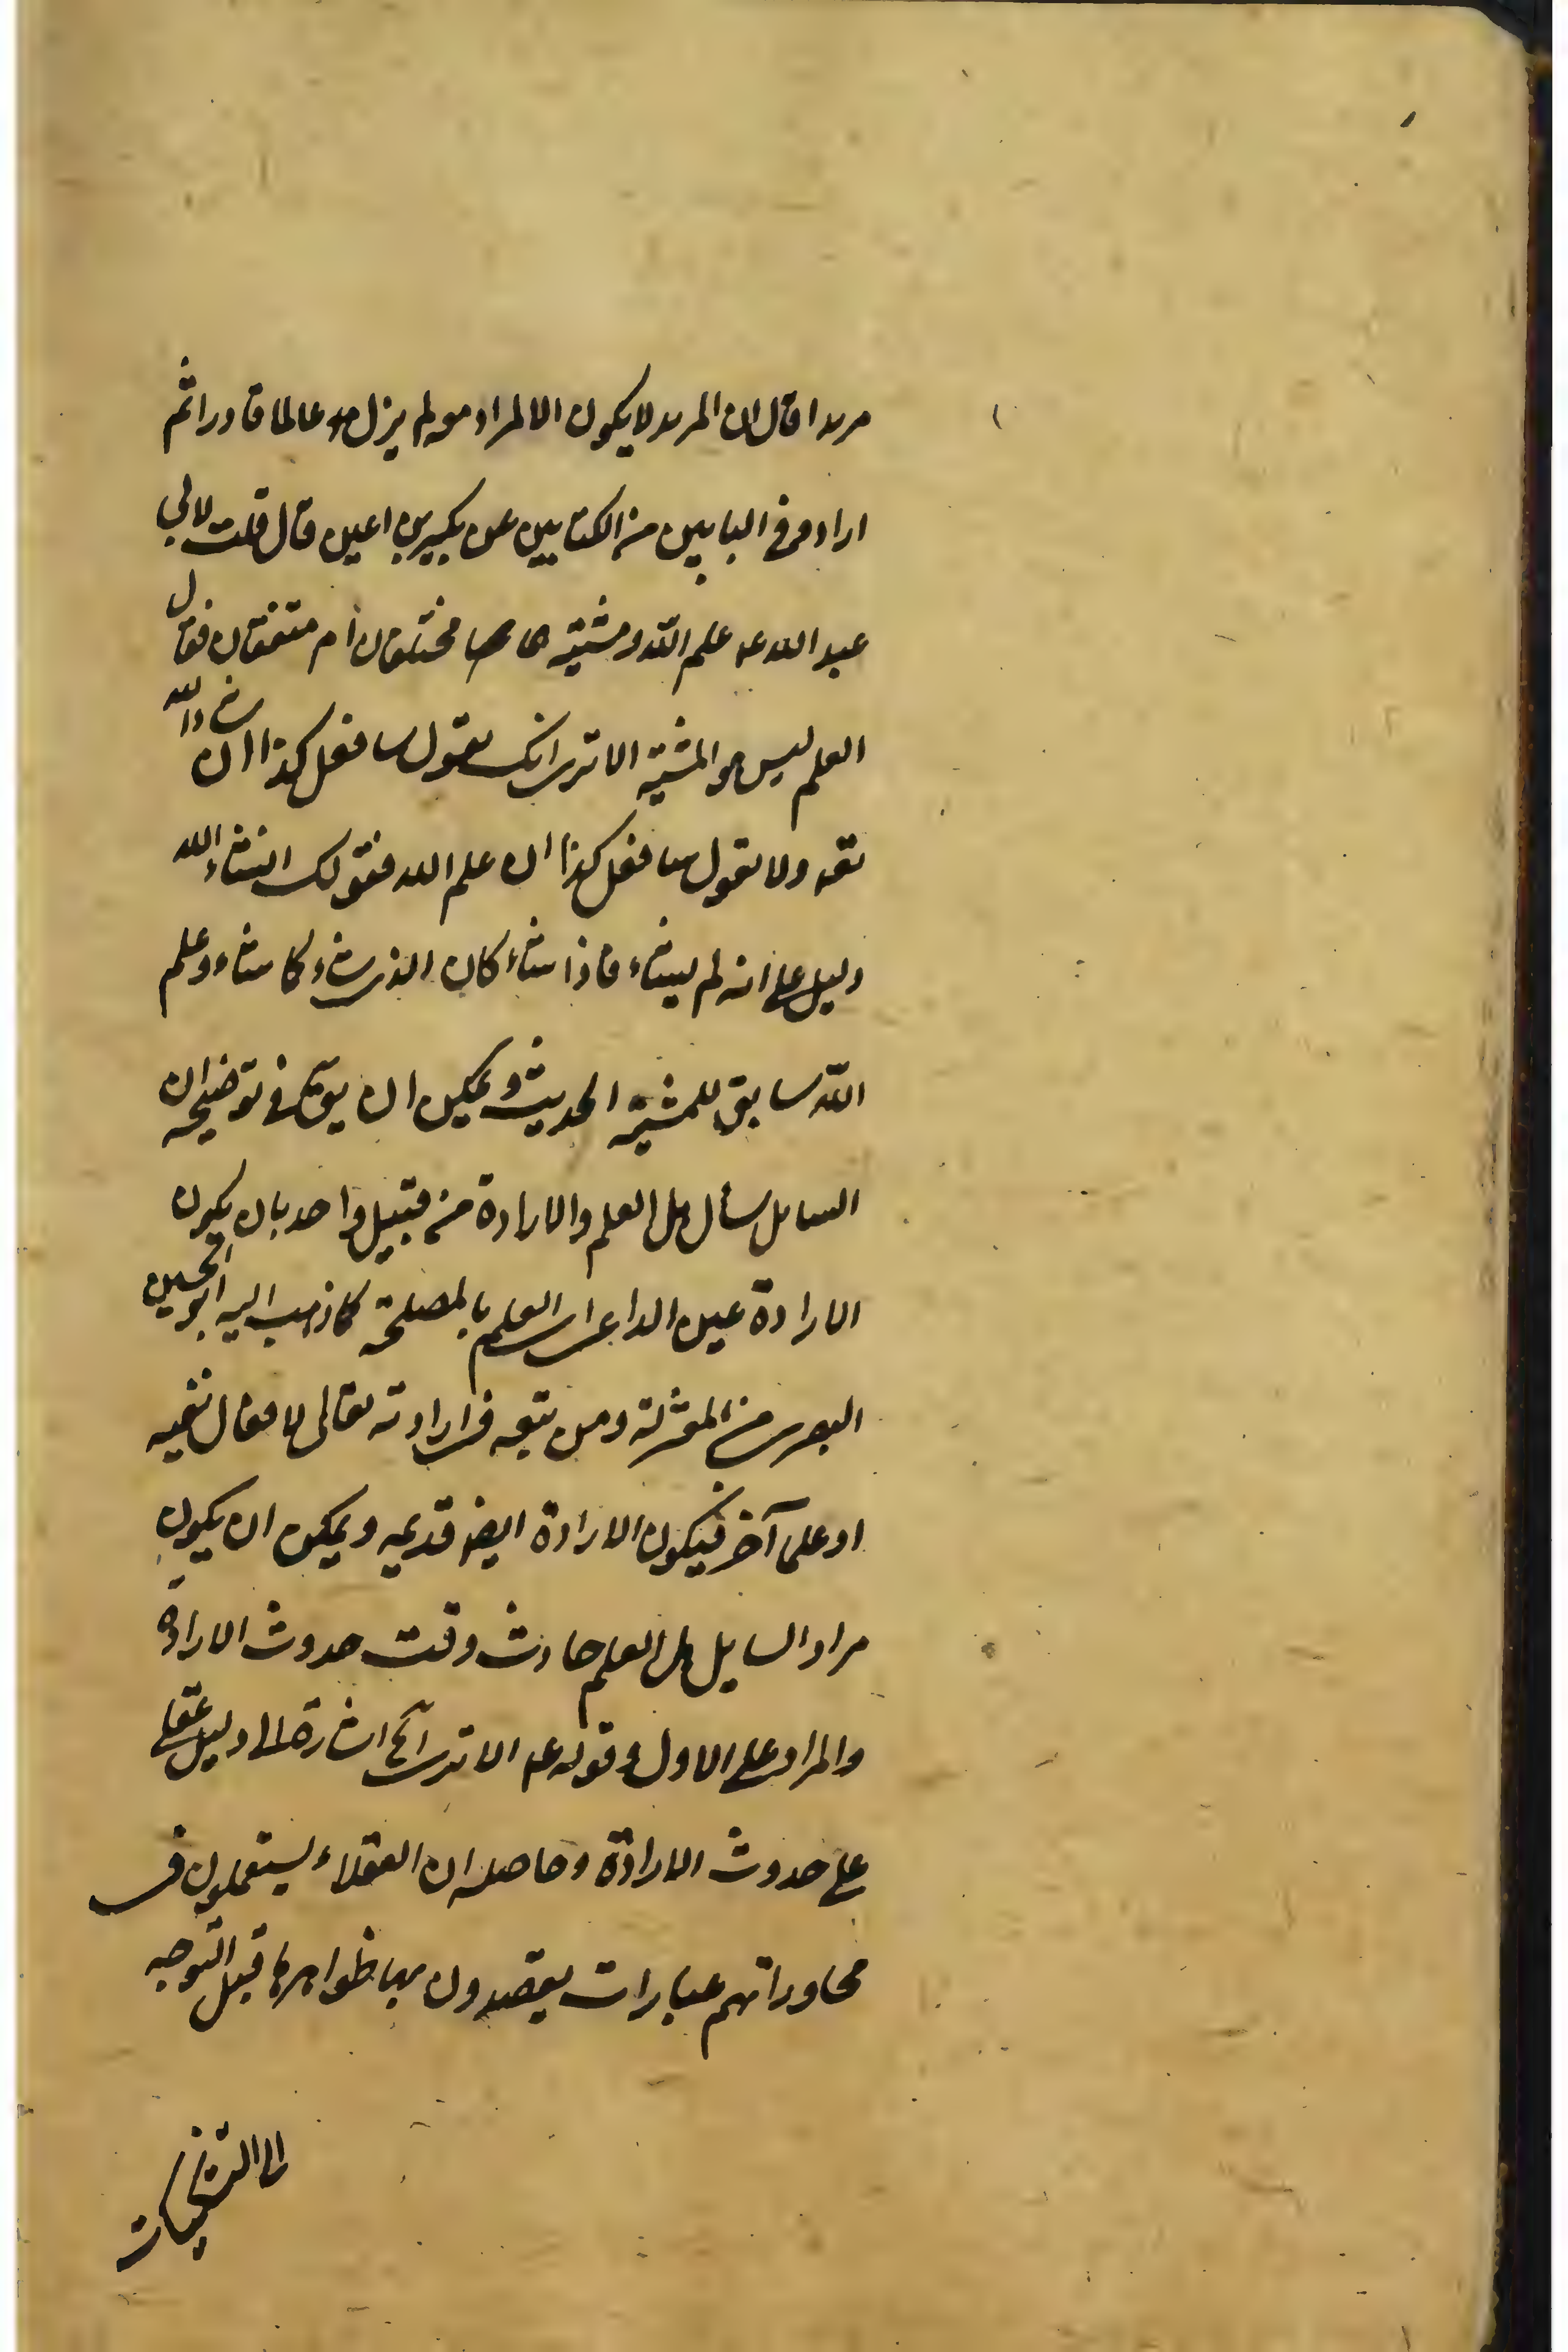 مريدا قال ان المريد لا يكون الا لمراد معه لم يزل الله عالما قادرا ثم
اراد وفى البابين من الكتابين عن بكير بن اعين قال قلت لابي
عبد الله عه علم الله ومشيته هما مختلفان ام متفقان فقال
العلم ليس هو المشية الا ترى انك تقول سافعل كذا ان شاء الله
ولا تقول سافعل كذا ان علم الله فقولك انشاء الله
دليل على انه لم يشاء فاذا شاء كان الذى شاء كما شاء وعلم
الله سابق للمشية الحديث ويمكن ان يق فى توضيحه ان
السايل سأل هل العلم والارادة من قبيل واحد بان يكون
الارادة عين الداعى اى العلم بالمصلحة كما ذهب اليه ابو الحسين
البصرى من المعتزلة ومن تبعه فى ارادته تعالى لافعال نفسه
او على آخر فيكون الارادة ايضا قديمه ويمكن ان يكون
مراد السايل هل العلم حادث وقت حدوث الارادة
والمراد على الاول وقوله عه الا ترى آه اشارة الى دليل عقلى
على حدوث الارادة وحاصله ان العقلاء يستعملون فى
محاوراتهم عبارات يقصدون بها ظواهرها قبل التوجه
الى التشكيكات